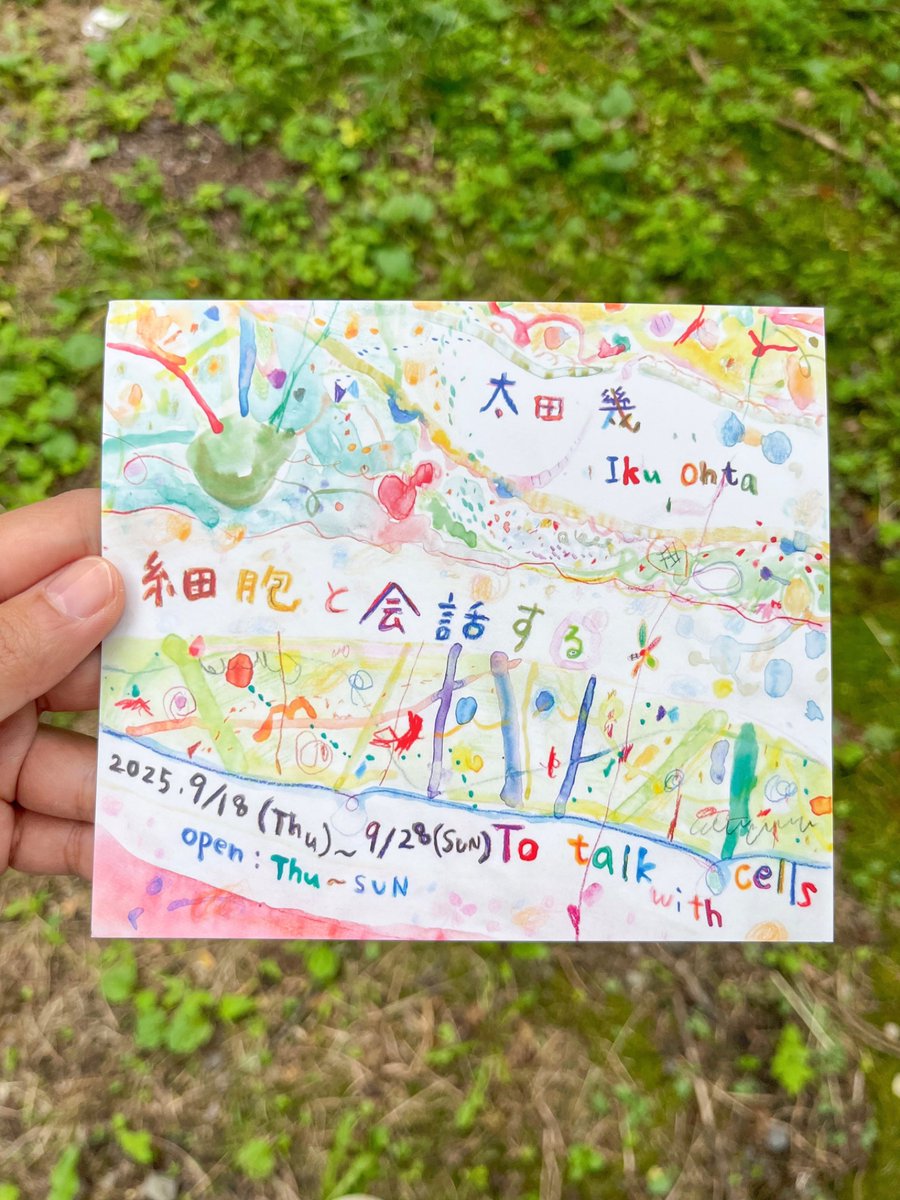 太田 幾
Iku Ohta
細胞と会話する
2025.9/18(Thu)~9/28(SUN)
open:Thu~SUN
To talk with cells